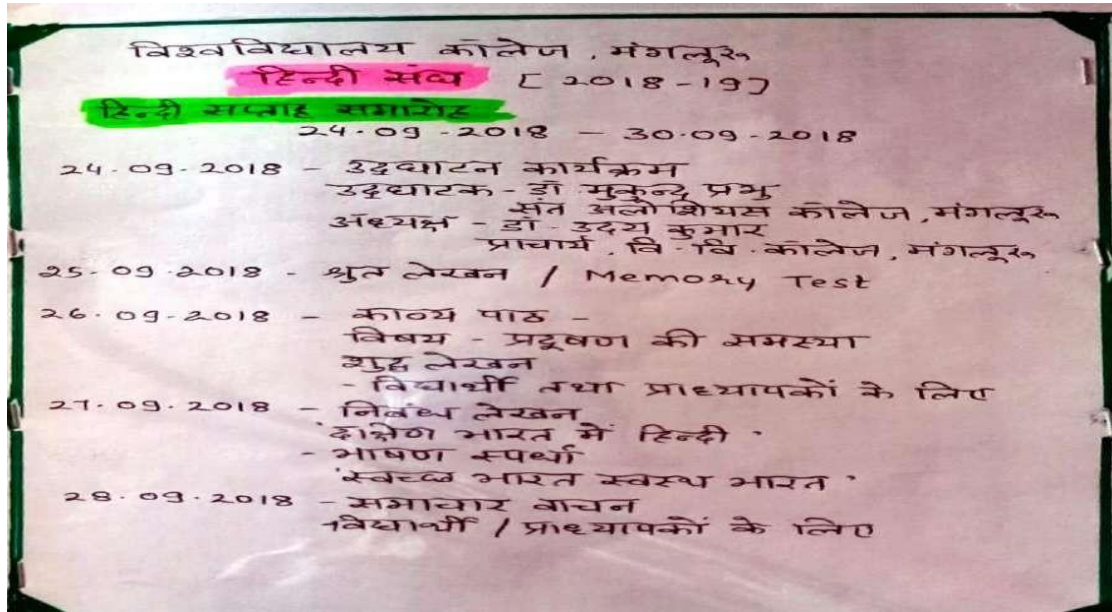 विश्वविद्यालय कॉलेज, मंगलूरु
हिन्दी संघ [2018-19]
हिन्दी सप्ताह समारोह
24.09.2018 - 30.09.2018
24.09.2018 - उद्घाटन कार्यक्रम
उद्घाटक - डॉ मुकुन्द प्रभु
संत अलोशियस कॉलेज, मंगलूरु
अध्यक्ष - डॉ. उदय कुमार
प्राचार्य, वि. वि. कॉलेज, मंगलूरु
25.09.2018 - श्रुत लेखन / Memory Test
26.09.2018 - काव्य पाठ -
विषय - प्रदूषण की समस्या
शुद्ध लेखन
- विद्यार्थी तथा प्राध्यापकों के लिए
27.09.2018 - निबंध लेखन
'दक्षिण भारत में हिन्दी'
- भाषण स्पर्धा
'स्वच्छ भारत स्वस्थ भारत'
28.09.2018 - समाचार वाचन
विद्यार्थी / प्राध्यापकों के लिए